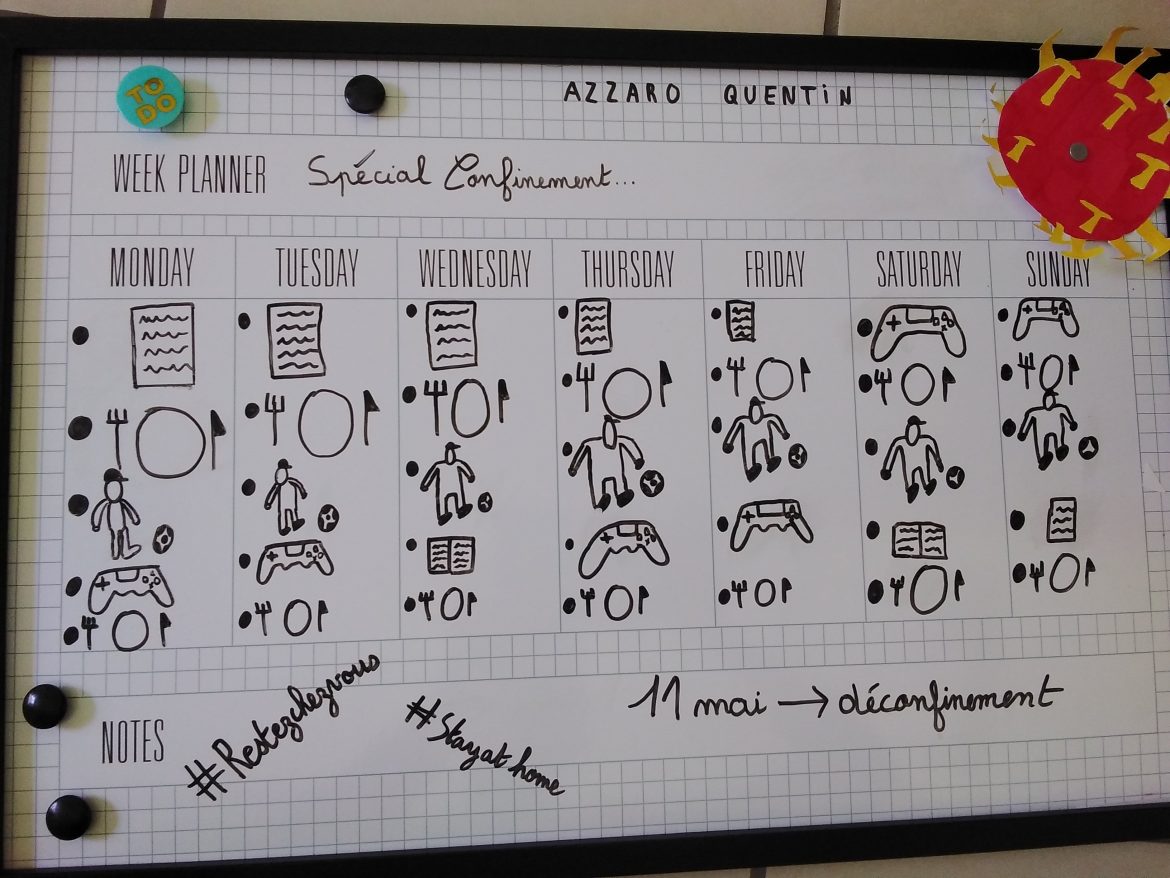 TO
DO
AZZARO QUENTIN
WEEK PLANNER Spécial Confinement...
MONDAY TUESDAY WEDNESDAY THURSDAY FRIDAY SATURDAY SUNDAY
11 mai → déconfinement
NOTES #Restezchezvous #Stayat home